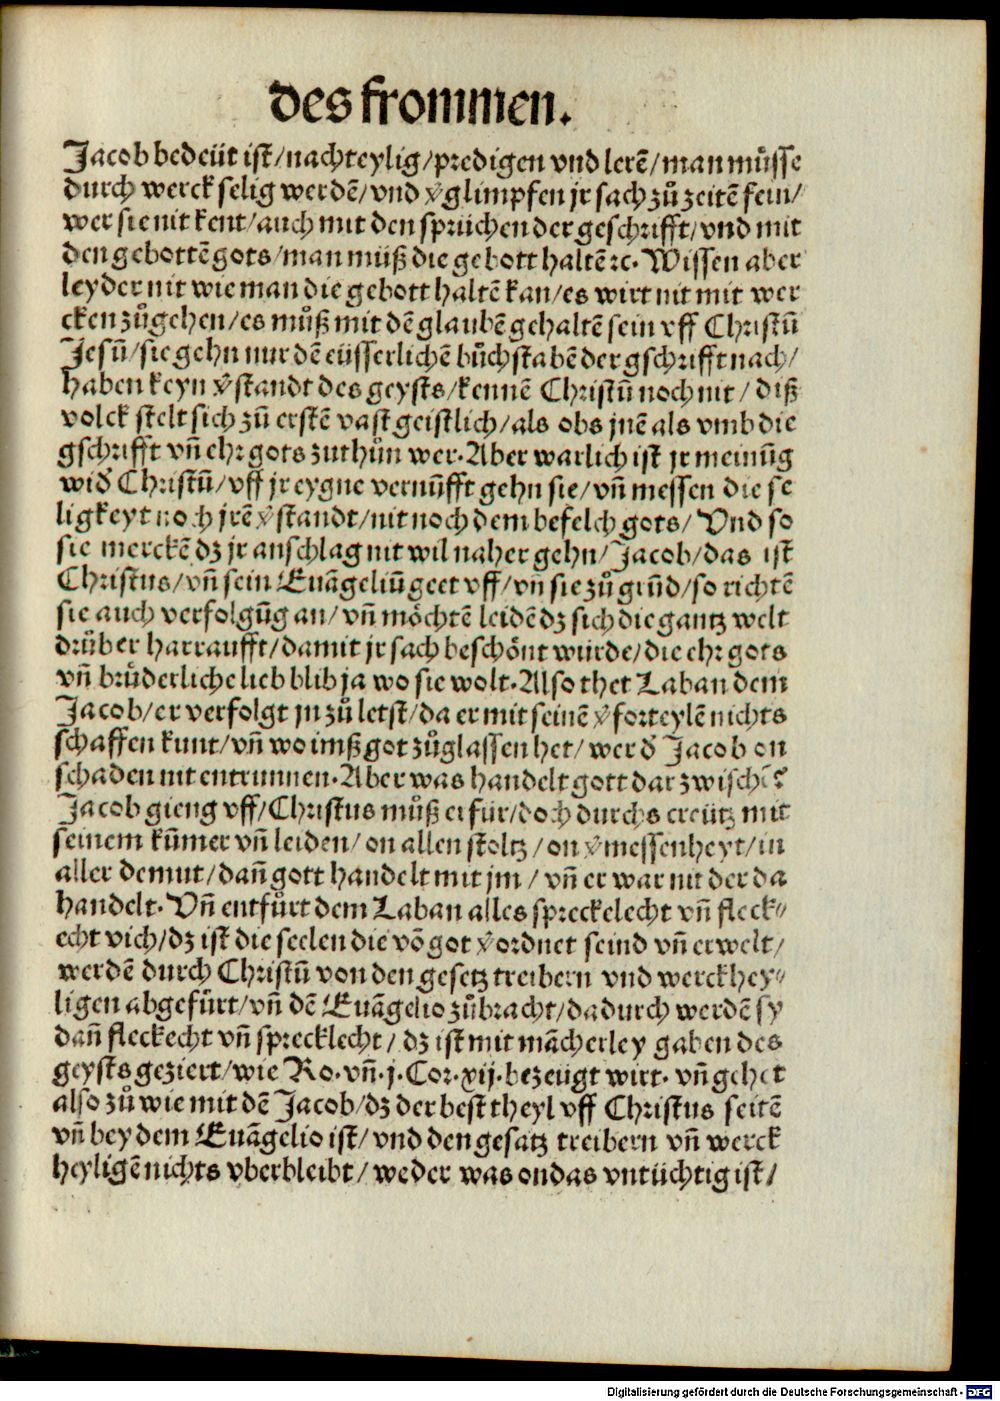 des frommen.
Jacob bedeüt ist/nachteylig/predigen vnd lerē/man müsse
durch werck selig werdē/vnd ꝟglimpfen jr sach zů zeitē fein/
wer sie nit kent/auch mit den sprüchen der geschrifft/vnd mit
den gebottē gots/man müß die gebott haltē ꝛc. Wissen aber
leyder nit wie man die gebott haltē kan/es wirt nit mit wer
cken zůgehen/es můß mit dē glaubē gehaltē sein vff Christū
Jesū/sie gehn nur dē eüsserlichē bůchstabē der gschrifft nach/
haben keyn ꝟstandt des geysts/kennē Christū noch nit/ diß
volck stelt sich zů erstē vast geistlich/als obs jnē als vmb die
gschrifft vñ ehr gots zuthůn wer. Aber warlich ist jr meinūg
wiď Christū/vff jr eygne vernūfft gehn sie/vñ messen die se
ligkeyt noch jrē ꝟstandt/nit noch dem befelch gots/ Vnd so
sie merckē dz jr anschlag nit wil naher gehn/Jacob/das ist
Christus/vñ sein Euāgeliū geet vff/vñ sie zů grūd/so richtē
sie auch verfolgūg an/vñ möchtē leidē dz sich die gantz welt
drüber harraufft/damit jr sach beschönt würde/die ehr gots
vñ brůderliche lieb blib ja wo sie wolt. Also thet Laban dem
Jacob/er verfolgt jn zů letst/da er mit seinē ꝟforteylē nichts
schaffen kunt/vñ wo imß got zůglassen het/wer ď Jacob on
schaden nit entrunnen. Aber was handelt gott dar zwischē?
Jacob gieng vff/Christus můß er für/doch durchs creütz mit
seinem kūmer vñ leiden/on allen stoltz/on ꝟmessenheyt/in
aller demut/dañ gott handelt mit jm/ vñ er war nit der da
handelt. Vñ entfůrt dem Laban alles spreckelecht vñ fleck⸗
echt vich/dz ist die seelen die vō got ꝟordnet seind vñ erwelt/
werdē durch Christū von den gesetz treibern vnd werckhey⸗
ligen abgefürt/vñ dē Euāgelio zůbracht/dadurch werdē sy
dañ fleckecht vñ sprecklecht/ dz ist mit mācherley gaben des
geysts geziert/wie Ro. vñ. j. Cor. xij. bezeugt wirt. vñ gehet
also zů wie mit dē Jacob/dz der best theyl vff Christus seitē
vñ bey dem Euāgelio ist/vnd den gesatz treibern vñ werck
heyligē nichts vberbleibt/weder was on das vntüchtig ist/
Digitalisierung gefördert durch die Deutsche Forschungsgemeinschaft - DFG